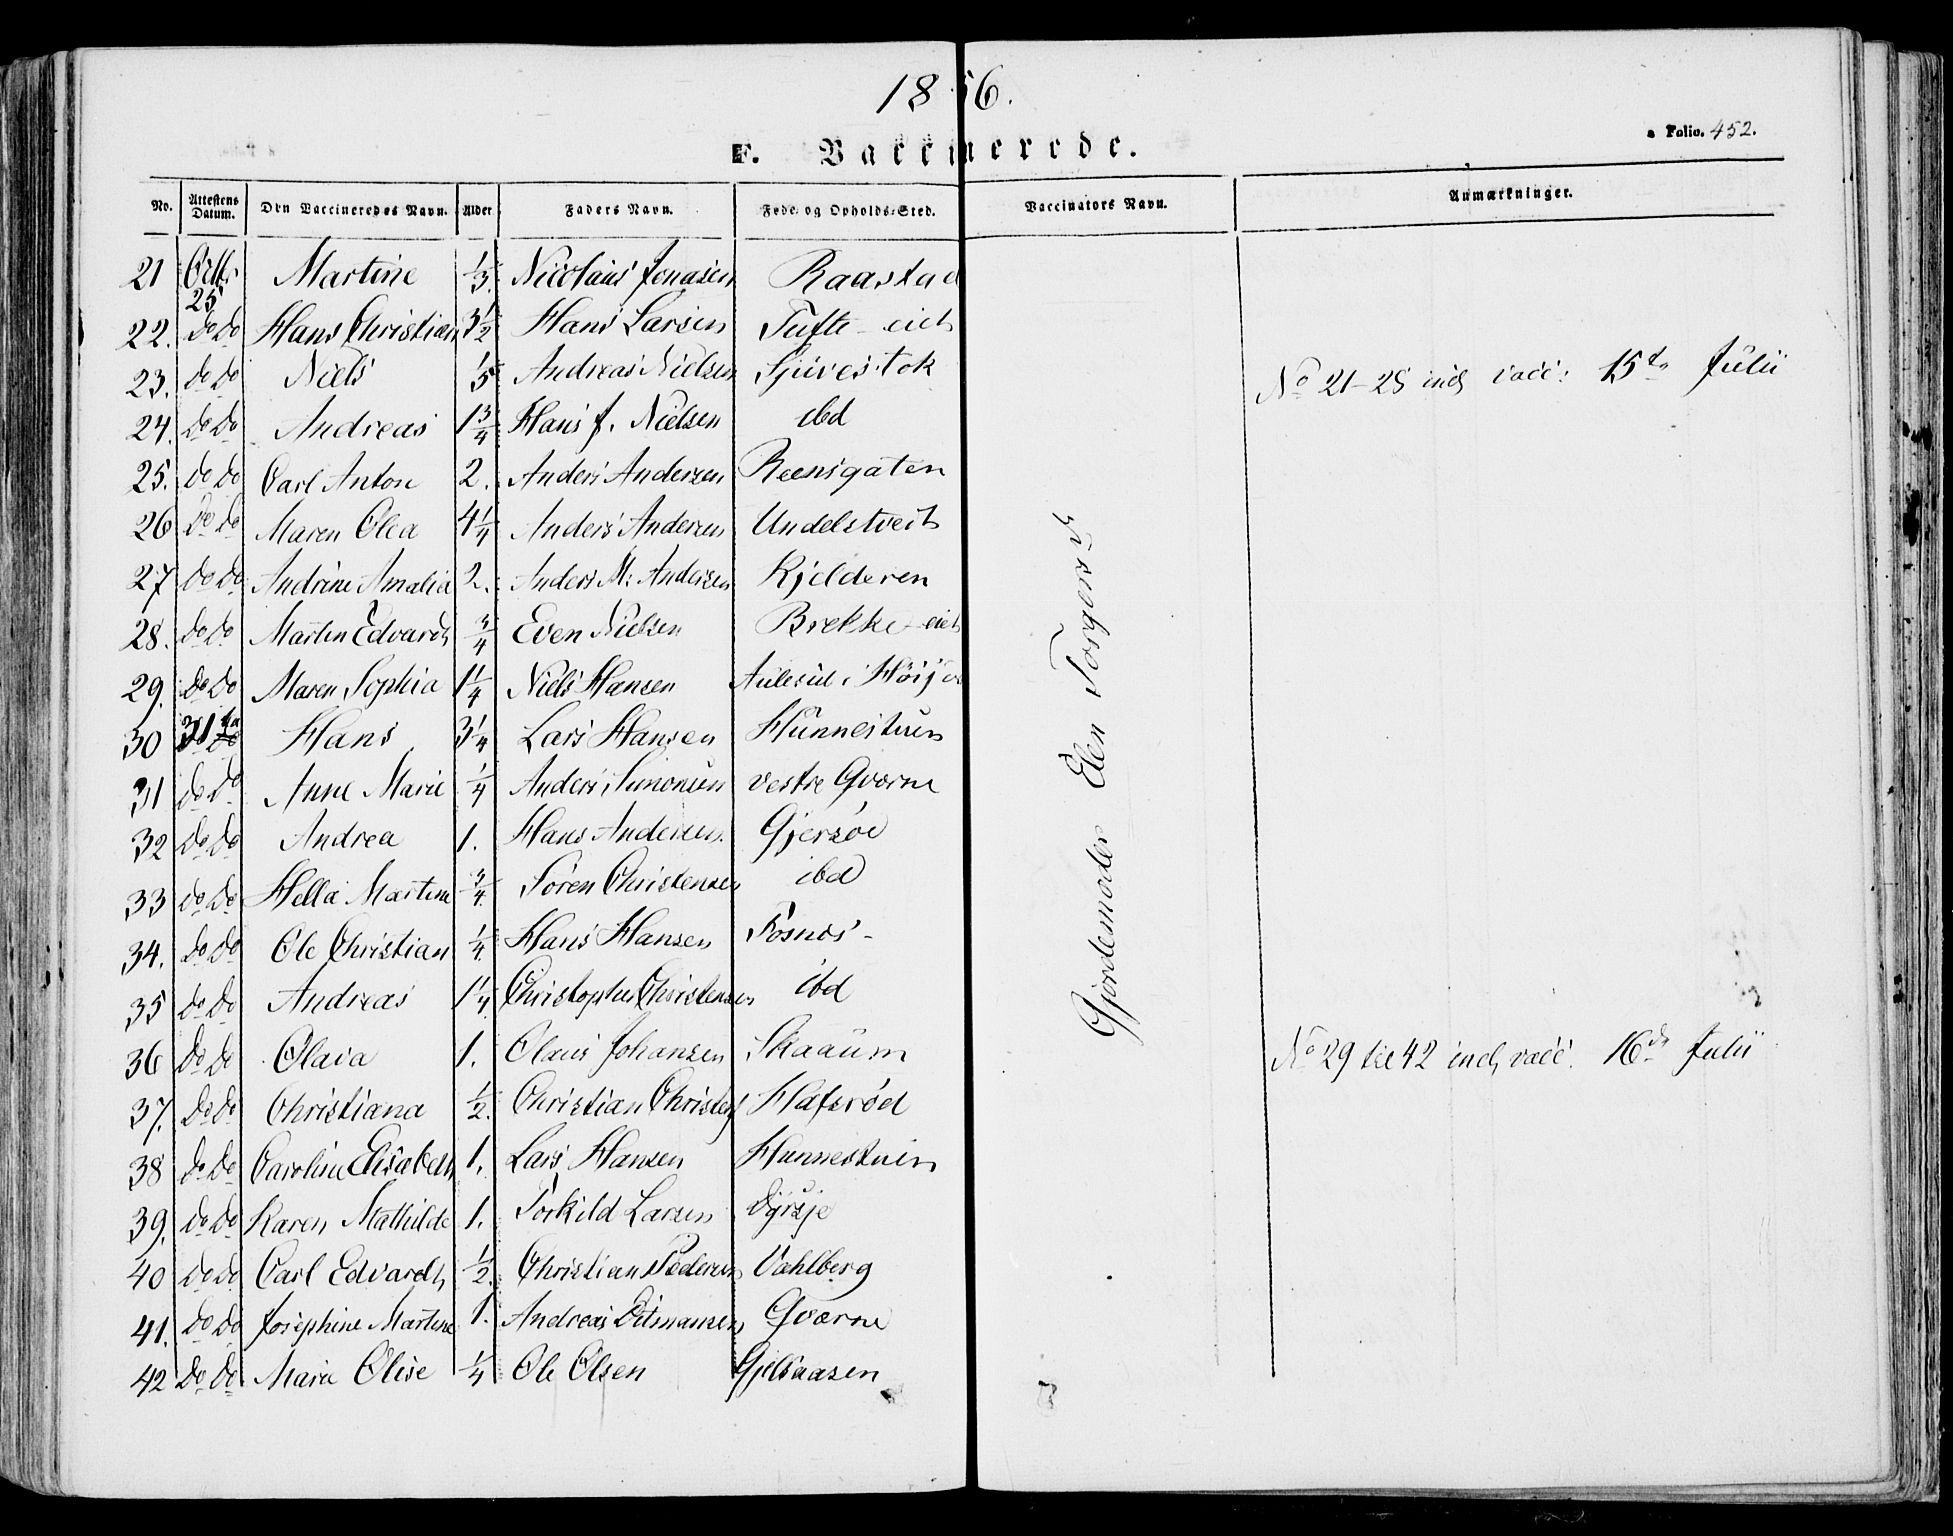 1856.
F. Vaccinerede.
Folio. 452.
No. Attestens Datum. Den Vaccineredes Navn. Alder Faders Navn. Føde- og Opholds-Sted. Vaccinators Navn. Anmærkninger.
21 Octb 25 Martine 1/3. Nicolaus Jonasen Raastad
22. Do Do Hans Christian 3 1/2 Hans Larsen Tufte eie
23. Do Do Niels 1/5 Andreas Nielsen
No 21-28 incl vacc: 15de Julii
24. Do Do Andreas 1 3/4 Hans J. Nielsen ibd
25. Do Do Carl Anton 2. Anders Andersen Reensgaten
26 Do Do Maren Olea 4 1/4 Anders Andersen Undelstveit
27 Do Do Andrine Amalia 2. Anders M: Andersen Kjelderen
28. Do Do Martin Edvardt 3/4 Even Nielsen Brekke eie
29. Do Do Maren Sophia 1 1/4 Niels Hansen Aulesie i Høijo
30 31te Do Do Hans 3 1/4 Lars Hansen Hunnestuen
31 Do Do Anne Marie 1/4 Anders Simonsen vestre Qværne
32 Do Do Andrea 1. Hans Andersen Gjersøe
33 Do Do Hella Martine 3/4 Sören Christensen ibd
34. Do Do Ole Christian 1/4 Hans Hansen Fosnæs
35 Do Do Andreas 1 1/4 Christopher Christensen ibd
36 Do Do Olava 1. Olaus Johansen Skaaum
No 29 til 42 incl, vacc. 16de Julii
37. Do Do Christiana 1/2. Christian Christens Hafsrød
38 Do Do Caroline Elisabeth 1. Lars Hansen Hunnestuen
39. Do Do Karen Mathilde 1. Torkild Larsen Dyrsje
40 Do Do Carl Edvardt 1/2. Christian Pedersen Vahlberg
41. Do Do Josephine Martine 1. Andreas Ditmansen Qværne
42 Do Do Marie Olise 1/4 Ole Olsen Gjelsaasen
Gjordemoder Elen Torgersd